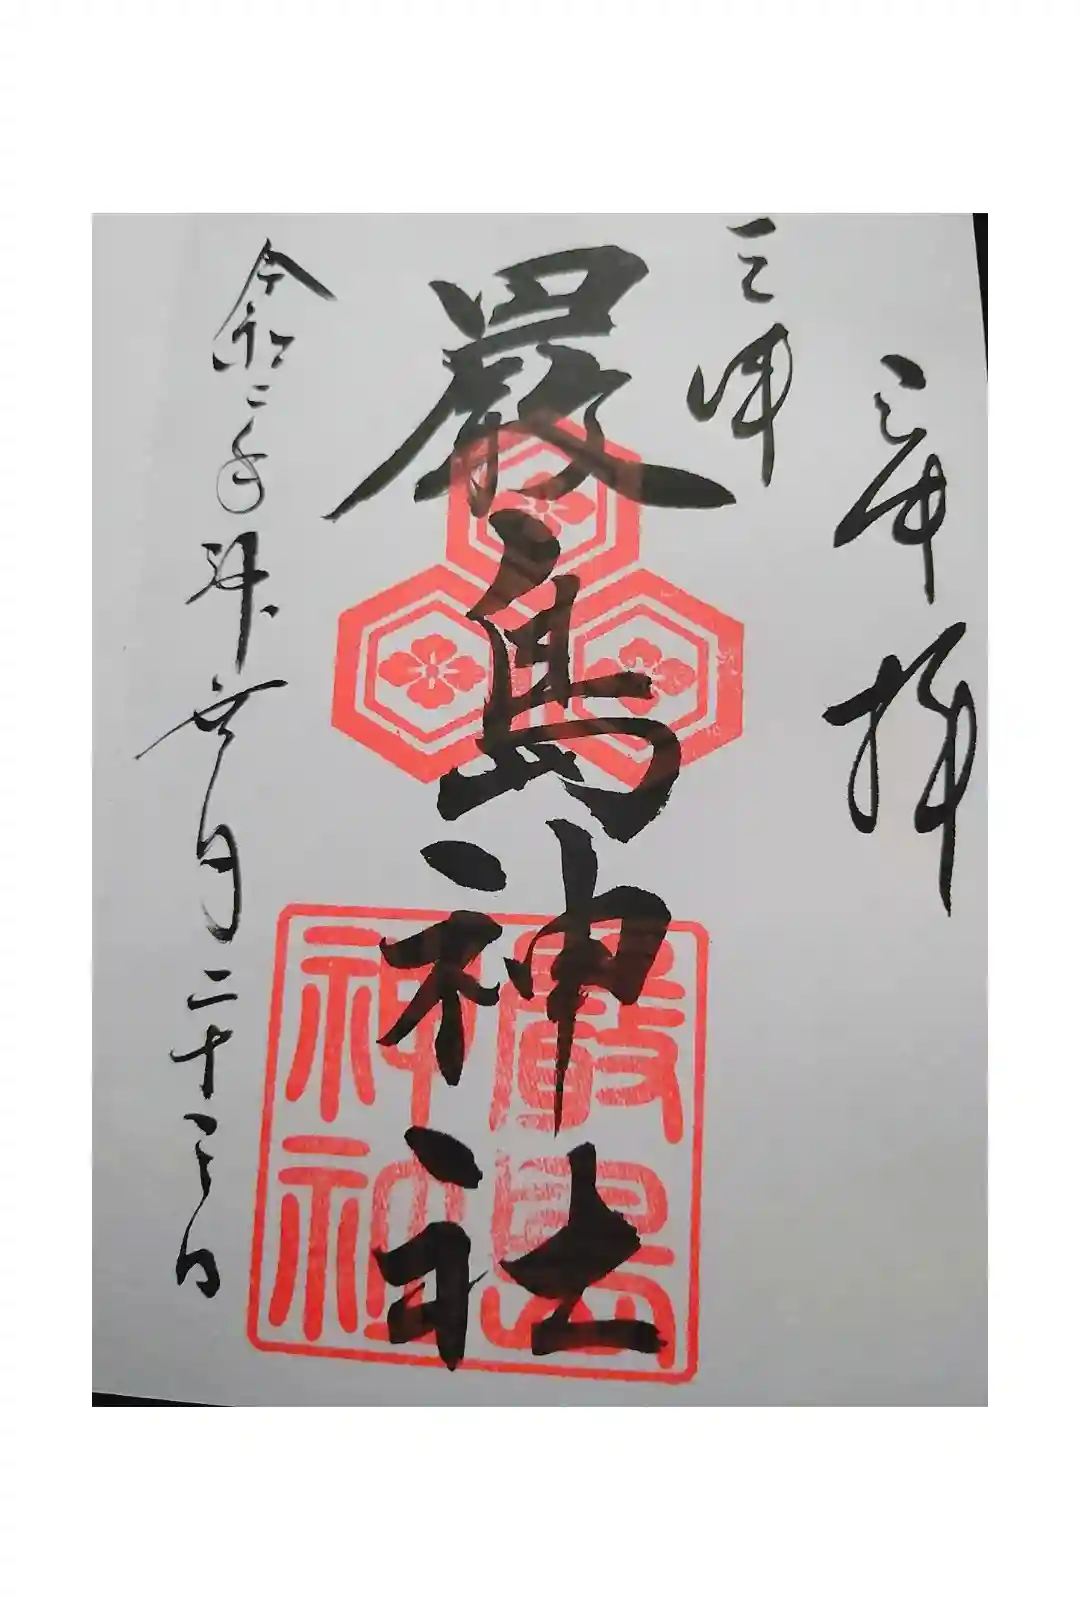 奉拝
厳島神社
嚴島
神社
令和二年神無月二十三日